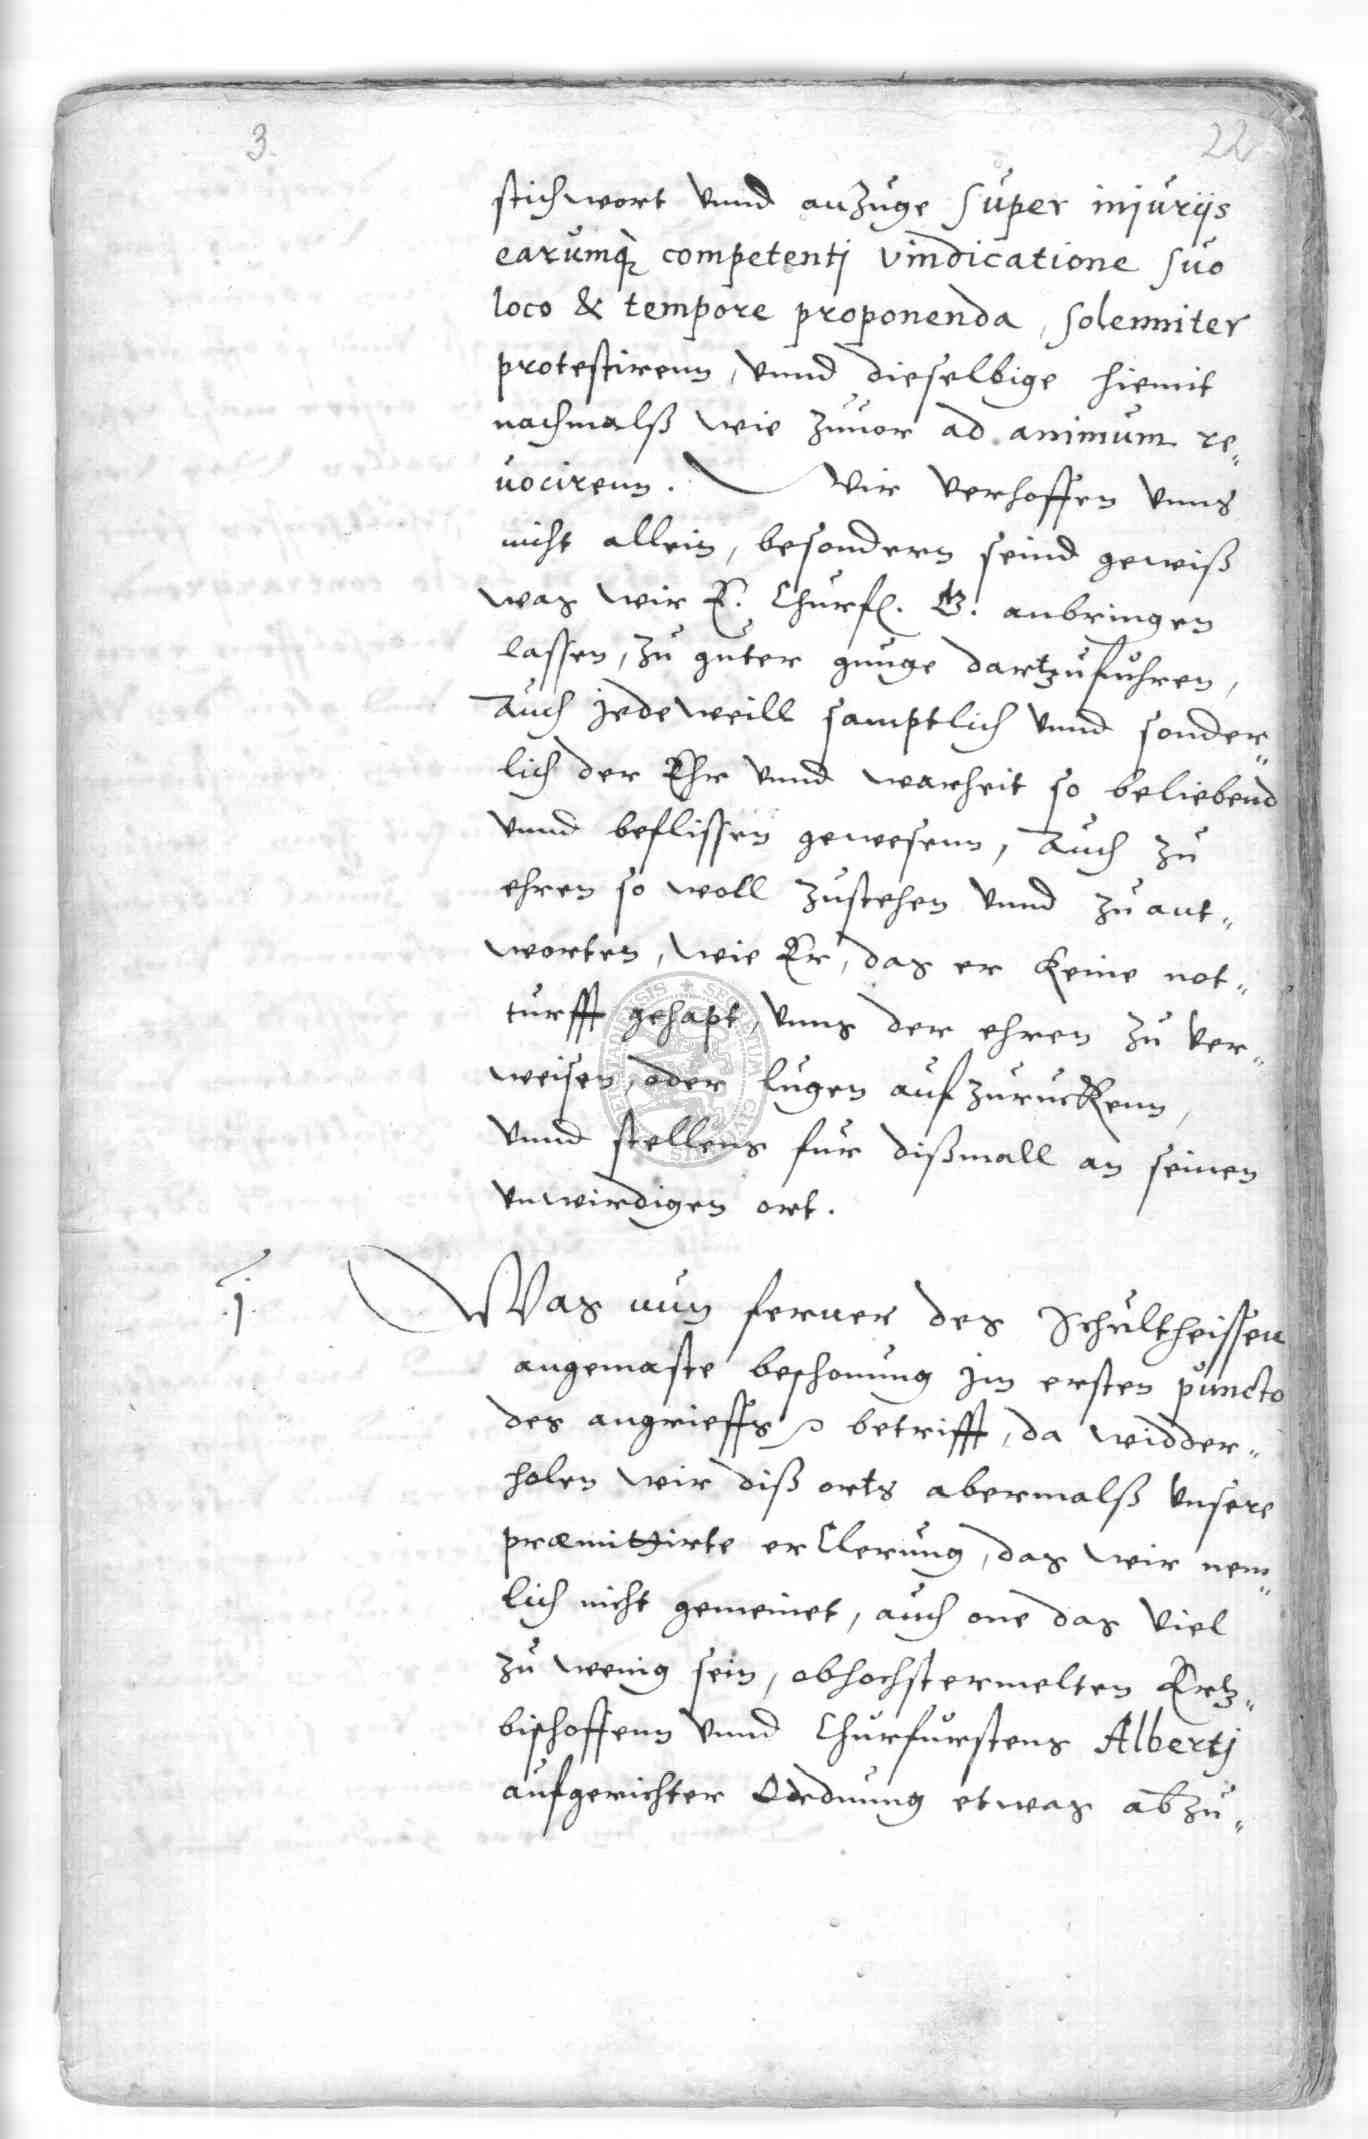 3.
22
stichwort vnnd anzuge super injurijs
earumq̀ competentj vindicatione suo
loco & tempore proponenda, solenniter
protestirenn, vnnd dieselbige hiemit
nachmalß wie zuuor ad animum re„
uocirenn. Wir verhoffen vnns
nicht allein, besondern seind gewiß
was wir E. Churf. G. anbringen
lassen, zu guter gnuge dartzufuhren,
Auch jedeweill samptlich vnnd sonder„
lich der Ehr vnnd warheit so beliebend
vnnd beflissen gewesenn, Auch zu
ehren so woll zustehen vnnd zu ant„
worten, wie Er, das er keine not„
turfft gehapt, vnns der ehren zu ver„
weisen, oder lugen aufzuruckenn,
vnnd stellens fur dißmall an seinen
vnwirdigen ort.
.j.
Was nun ferner des Schultheissen
angemaste beschonung jm ersten puncto
des angrieffs betrifft, da widder„
holen wir diß orts abermalß vnsere
præmittirte erClerung, das wir nem„
lich nicht gemeinet, auch one das viel
zu wenig sein, obhochstermelten Ertz„
bischoffenn vnnd Churfurstens Albertj
aufgerichter Ordnung etwas abzu„